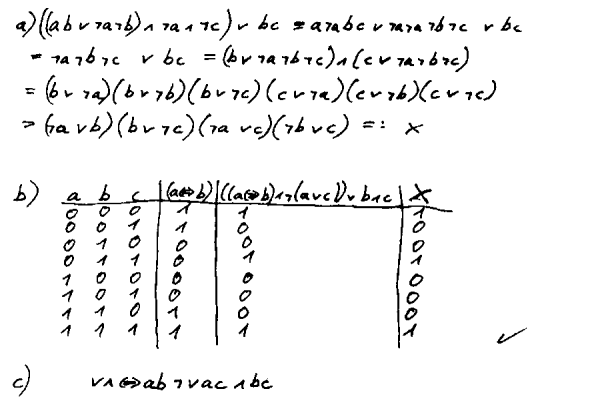 a) ((ab ∨ ¬a¬b) ∧ ¬a ∧ ¬c) ∨ bc = a¬abc ∨ ¬a¬a¬b¬c ∨ bc
= ¬a¬b¬c ∨ bc = (b ∨ ¬a¬b¬c) ∧ (c ∨ ¬a¬b¬c)
= (b ∨ ¬a)(b ∨ ¬b)(b ∨ ¬c)(c ∨ ¬a)(c ∨ ¬b)(c ∨ ¬c)
= (¬a ∨ b)(b ∨ ¬c)(¬a ∨ c)(¬b ∨ c) =: X
b) a b c | (a⇔b) | ((a⇔b)∧¬(a∨c))∨b∧c | X
0 0 0 | 1 | 1 | 1
0 0 1 | 1 | 0 | 0
0 1 0 | 0 | 0 | 0
0 1 1 | 0 | 1 | 1
1 0 0 | 0 | 0 | 0
1 0 1 | 0 | 0 | 0
1 1 0 | 1 | 0 | 0
1 1 1 | 1 | 1 | 1 ✓
c) ∨∧⇔ab¬∨ac∧bc